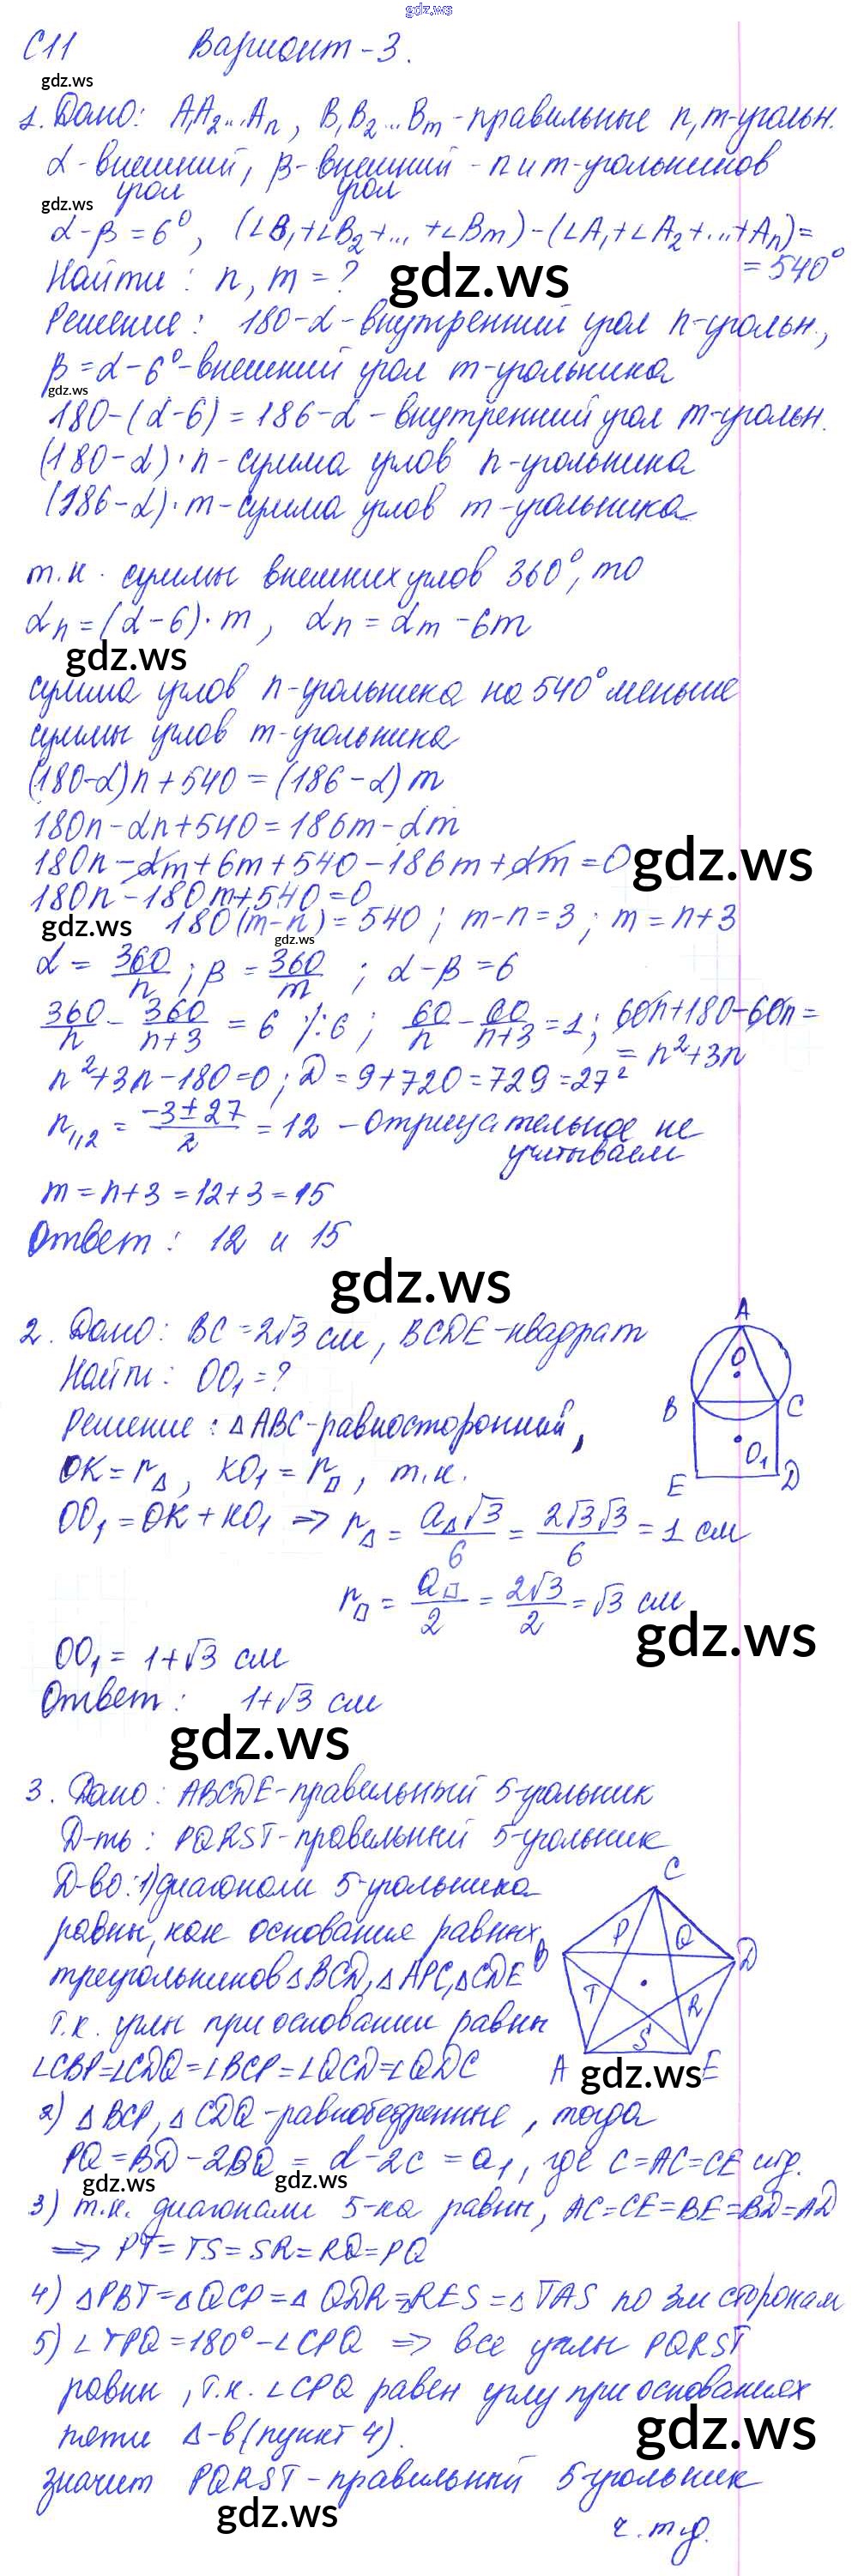 gdz.ws
С11 Вариант-3.
gdz.ws
1. Дано: A₁A₂...Aₙ, B₁B₂...Bₘ - правильные n, m-угольн.
α - внешний угол, β - внешний угол - n и m-угольников
gdz.ws
α-β = 6°, (∠B₁+∠B₂+...+∠Bₘ)-(∠A₁+∠A₂+...+Aₙ)=
= 540°
Найти: n, m = ?
gdz.ws
Решение: 180-α - внутренний угол n-угольн.,
β = α-6° - внешний угол m-угольника
gdz.ws
180-(α-6) = 186-α - внутренний угол m-угольн.
(180-α)·n - сумма углов n-угольника
(186-α)·m - сумма углов m-угольника
т.к. суммы внешних углов 360°, то
αn = (α-6)·m, αn = αm - 6m
gdz.ws
сумма углов n-угольника на 540° меньше
суммы углов m-угольника
(180-α)n + 540 = (186-α)m
180n - αn + 540 = 186m - αm
180n - αm + 6m + 540 - 186m + αm = 0
gdz.ws
180n - 180m + 540 = 0
gdz.ws
180(m-n) = 540; m-n = 3; m = n+3
gdz.ws
α = 360/n; β = 360/m; α-β = 6
360/n - 360/(n+3) = 6 /:6; 60/n - 60/(n+3) = 1; 60n+180-60n =
= n²+3n
n²+3n-180=0; D = 9+720 = 729 = 27²
n₁,₂ = (-3±27)/2 = 12 - отрицательное не
учитываем
m = n+3 = 12+3 = 15
Ответ: 12 и 15
gdz.ws
2. Дано: BC = 2√3 см, BCDE - квадрат
Найти: OO₁ = ?
Решение: △ABC - равносторонний,
OK = r△, KO₁ = r□, т.к.
OO₁ = OK + KO₁ ⇒ r△ = a△√3/6 = 2√3√3/6 = 1 см
r□ = a□/2 = 2√3/2 = √3 см
gdz.ws
OO₁ = 1+√3 см
Ответ: 1+√3 см
A
O
B
C
O₁
E
D
gdz.ws
3. Дано: ABCDE - правильный 5-угольник
Д-ть: PQRST - правильный 5-угольник
Д-во: 1) диагонали 5-угольника
равны, как основания равных
треугольников △BCD, △APC, △CDE
т.к. углы при основании равны
∠CBP=∠CDQ=∠BCP=∠QCD=∠QDC
C
P
Q
B
D
T
R
S
A
E
gdz.ws
2) △BCP, △CDQ - равнобедренные, тогда
PQ = BD - 2BQ = d - 2c = a₁, где c=AC=CE итд.
gdz.ws
gdz.ws
3) т.к. диагонали 5-ка равны, AC=CE=BE=BD=AD
⇒ PT = TS = SR = RQ = PQ
4) △PBT = △QCP = △QDR = RES = △TAS по 3м сторонам
5) ∠TPQ = 180° - ∠CPQ ⇒ все углы PQRST
равны, т.к. ∠CPQ равен углу при основаниях
пяти △-в (пункт 4).
gdz.ws
значит PQRST - правильный 5-угольник
gdz.ws
ч.т.д.